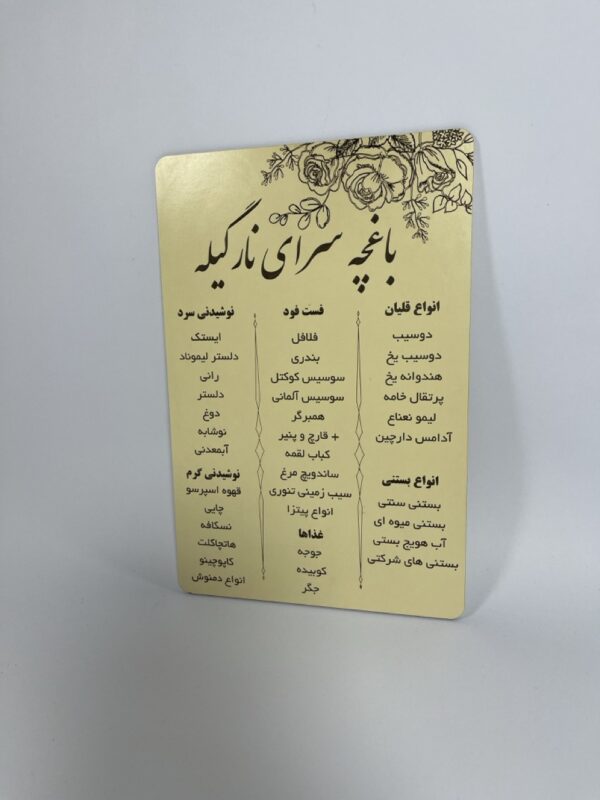 باغچه سرای نارگیله
انواع قلیان
دوسیب
دوسیب یخ
هندوانه یخ
پرتقال خامه
لیمو نعناع
آدامس دارچین
انواع بستنی
بستنی سنتی
بستنی میوه ای
آب هویج بستی
بستنی های شرکتی
فست فود
فلافل
بندری
سوسیس کوکتل
سوسیس آلمانی
همبرگر
+ قارچ و پنیر
کباب لقمه
ساندویچ مرغ
سیب زمینی تنوری
انواع پیتزا
غذاها
جوجه
کوبیده
جگر
نوشیدنی سرد
ایستک
دلستر لیموناد
رانی
دلستر
دوغ
نوشابه
آبمعدنی
نوشیدنی گرم
قهوه اسپرسو
چایی
نسکافه
هاتچاکلت
کاپوچینو
انواع دمنوش